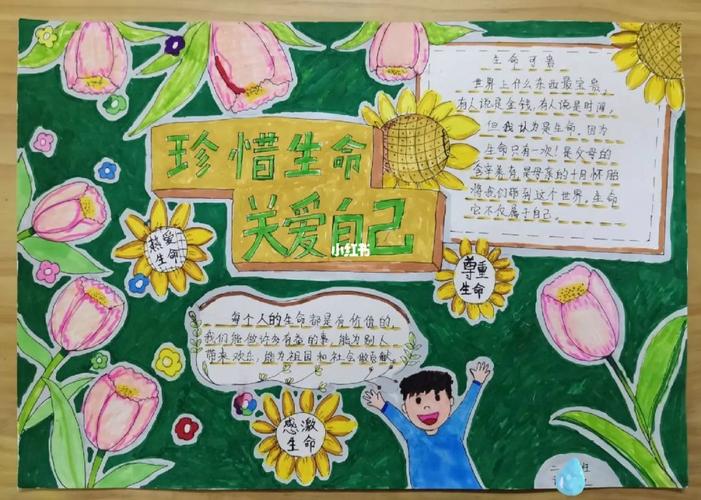 珍惜生命
关爱自己
小红书
生命可贵
世界上什么东西最宝贵,
有人说是金钱,有人说是时间,
但我认为是生命。因为
生命只有一次!是父母的
含辛养育,是母亲的十月怀胎
将我们带到这个世界。生命
它不仅属于自己。
热爱
生命
尊重
生命
每个人的生命都是有价值的,
我们能做许多有益的事,能为别人
带来欢乐,能为祖国和社会做贡献。
感激
生命
班